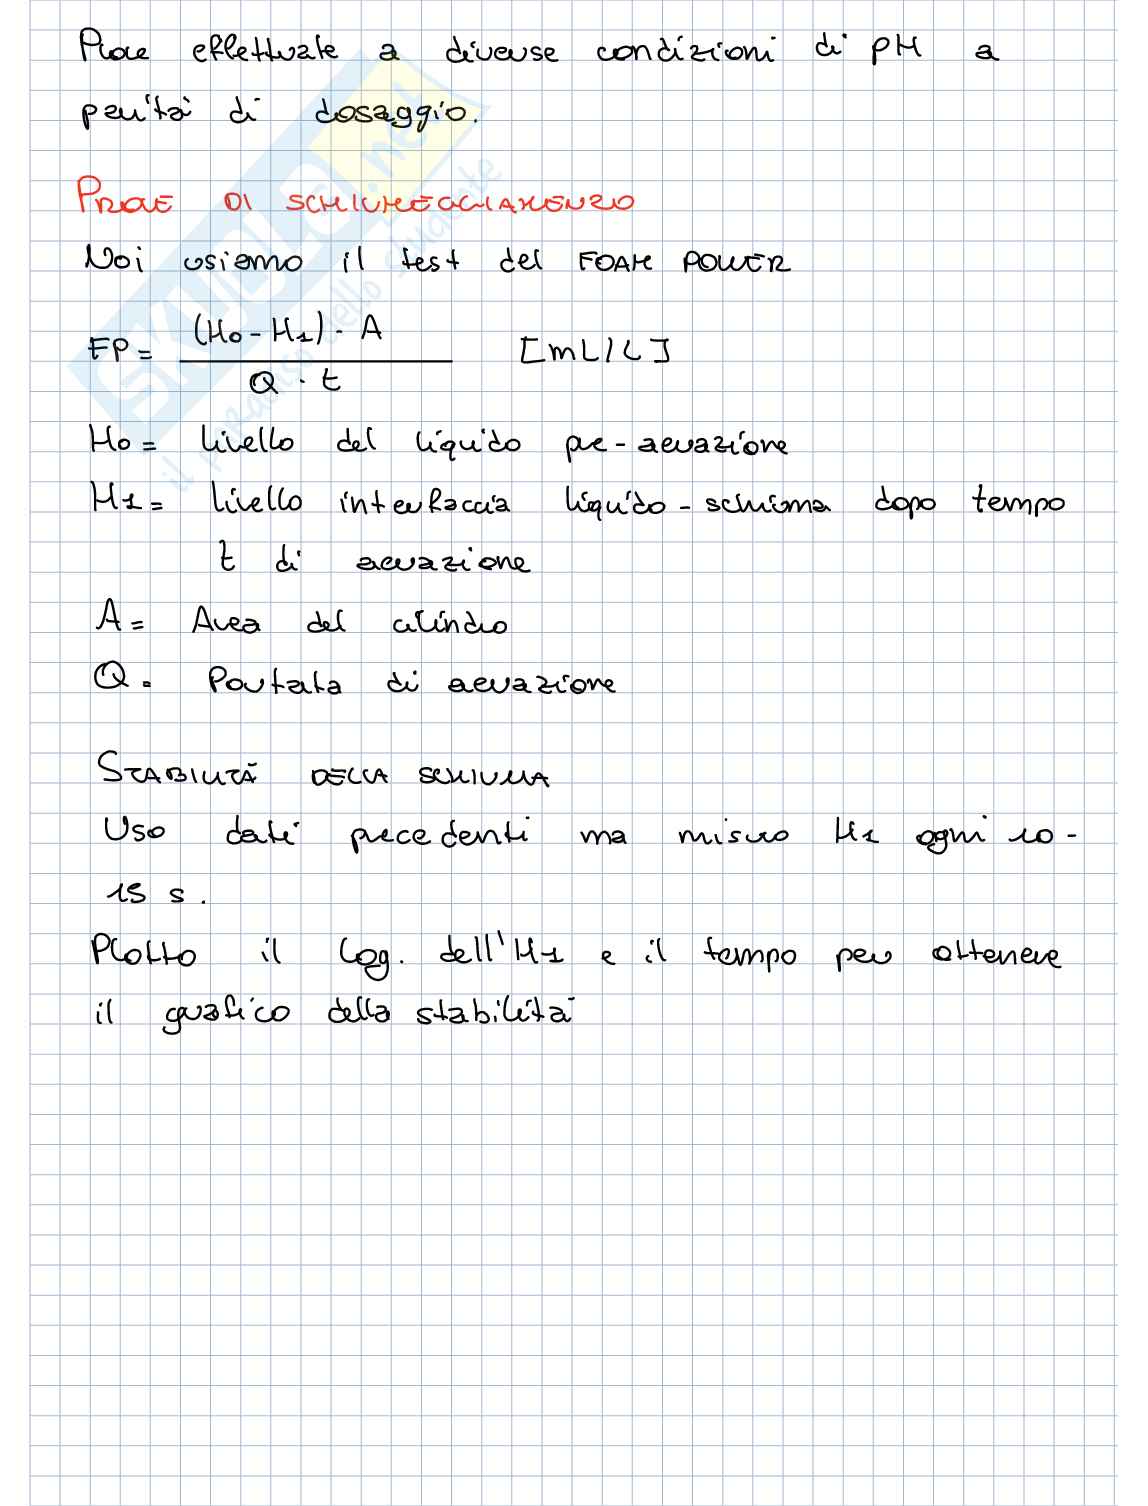 Prove effettuate a diverse condizioni di pH a
parità di dosaggio.
PROVE DI SCHIUMEGGIAMENTO
Noi usiamo il test del FOAM POWER
FP = (H0 - H1) · A / Q · t [mL/L]
H0 = livello del liquido pre-aerazione
H1 = livello interfaccia liquido-schiuma dopo tempo
t di aerazione
A = Area del cilindro
Q = Portata di aerazione
STABILITÀ DELLA SCHIUMA
Uso dati precedenti ma misuro H1 ogni 10-
15 s.
Plotto il log. dell'H1 e il tempo per ottenere
il grafico della stabilità
SKUOLA.net
il paradiso dello studente